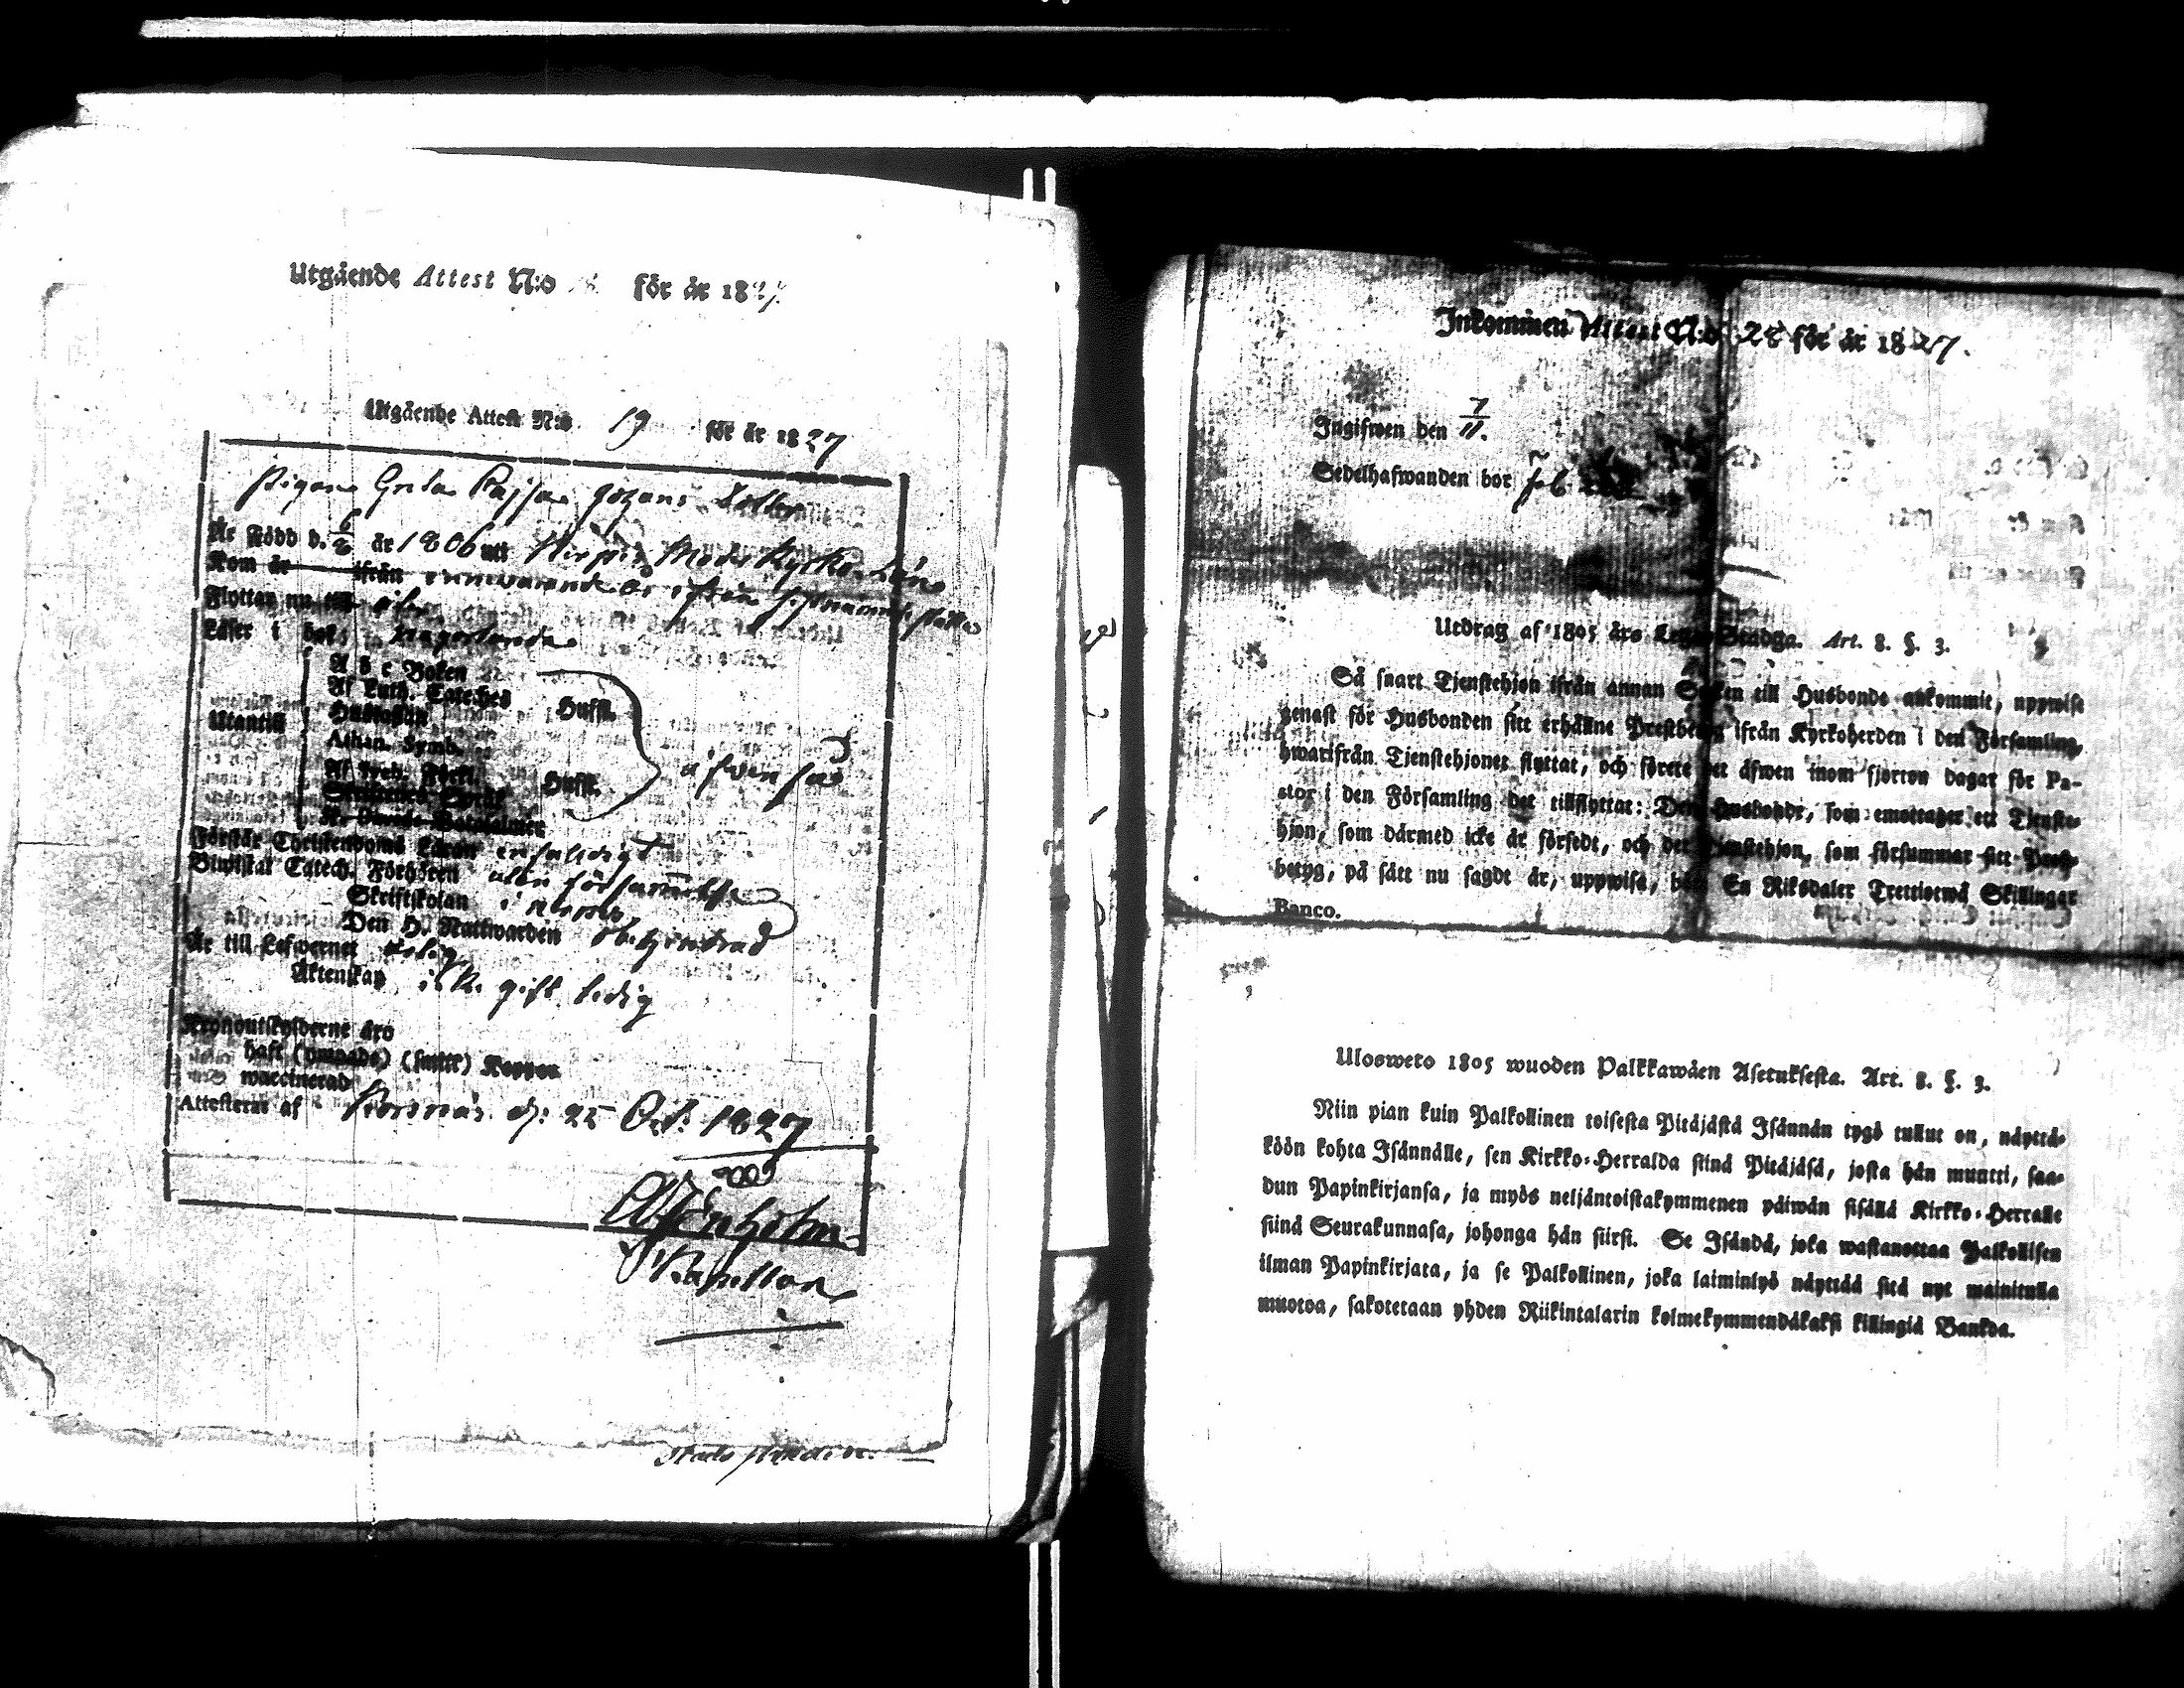 Utgående Attest N:o för år 1827
Utgående Attest N:o 19 för år 1827
Pigan Greta Cajsa Johans Dotter
Är Född d. 6/8 år 1806 uti Moder Kyrko
Kom år ifrån innevarande år ifrån
Flyttar nu till
Läser i bok
A b c Boken
Af Luth. Cateches
Hustaflan Husfl.
Utantill
Athan. Symb.
Af Sveb. Förkl. Husfl. äfven så
Skriftenes Språk
Förstår Christendoms Läran enfaldigt
Biwistat Catech. Förhören utan försummelse
Skriftskolan
Den H. Nattwarden
Är till Lefwernet
Äktenskap ledig
Kronoutskylderne äro
haft (ympade) (smitt) Koppor
waccinerad
Attesteras af d: 25 Oct: 1827
Inkommen Attest N:o 28 för år 1827.
Ingifwen den 7/11.
Sedelhafwanden bor
Utdrag af 1805 års Lego-Stadga. Art. 8. §. 3.
Så snart Tjenstehjon ifrån annan Socken till Husbonde ankommit, uppwise
genast för Husbonden sitt erhållne Prestbetyg ifrån Kyrkoherden i den Församling,
hwarifrån Tjenstehjonet flyttat, och förete det äfwen inom fjorton dagar för Pa-
stor i den Församling det tillflyttat: Den Husbonde, som emottager ett Tjenste-
hjon, som därmed icke är försedt, och det Tjenstehjon, som försummar sitt Prest-
betyg, på sätt nu sagdt är, uppwisa, böte En Riksdaler Trettiotwå Skillingar
Banco.
Ulosweto 1805 wuoden Palkkawäen Asetuksesta. Art. 8. §. 3.
Niin pian kuin Palkollinen toisesta Pitäjästä Isännän tygö tullut on, näyttä-
köön kohta Isännälle, sen Kirkko-Herralda siinä Pitäjäsä, josta hän muutti, saa-
dun Papinkirjansa, ja myös neljäntoistakymmenen päiwän sisällä Kirkko-Herralle
siinä Seurakunnasa, johonga hän siirsi. Se Isändä, joka wastanottaa Palkollisen
ilman Papinkirjata, ja se Palkollinen, joka laiminlyö näyttää sitä nyt mainitulla
muotoa, sakotetaan yhden Riikintalarin kolmekymmendäkaksi killingiä Bankda.